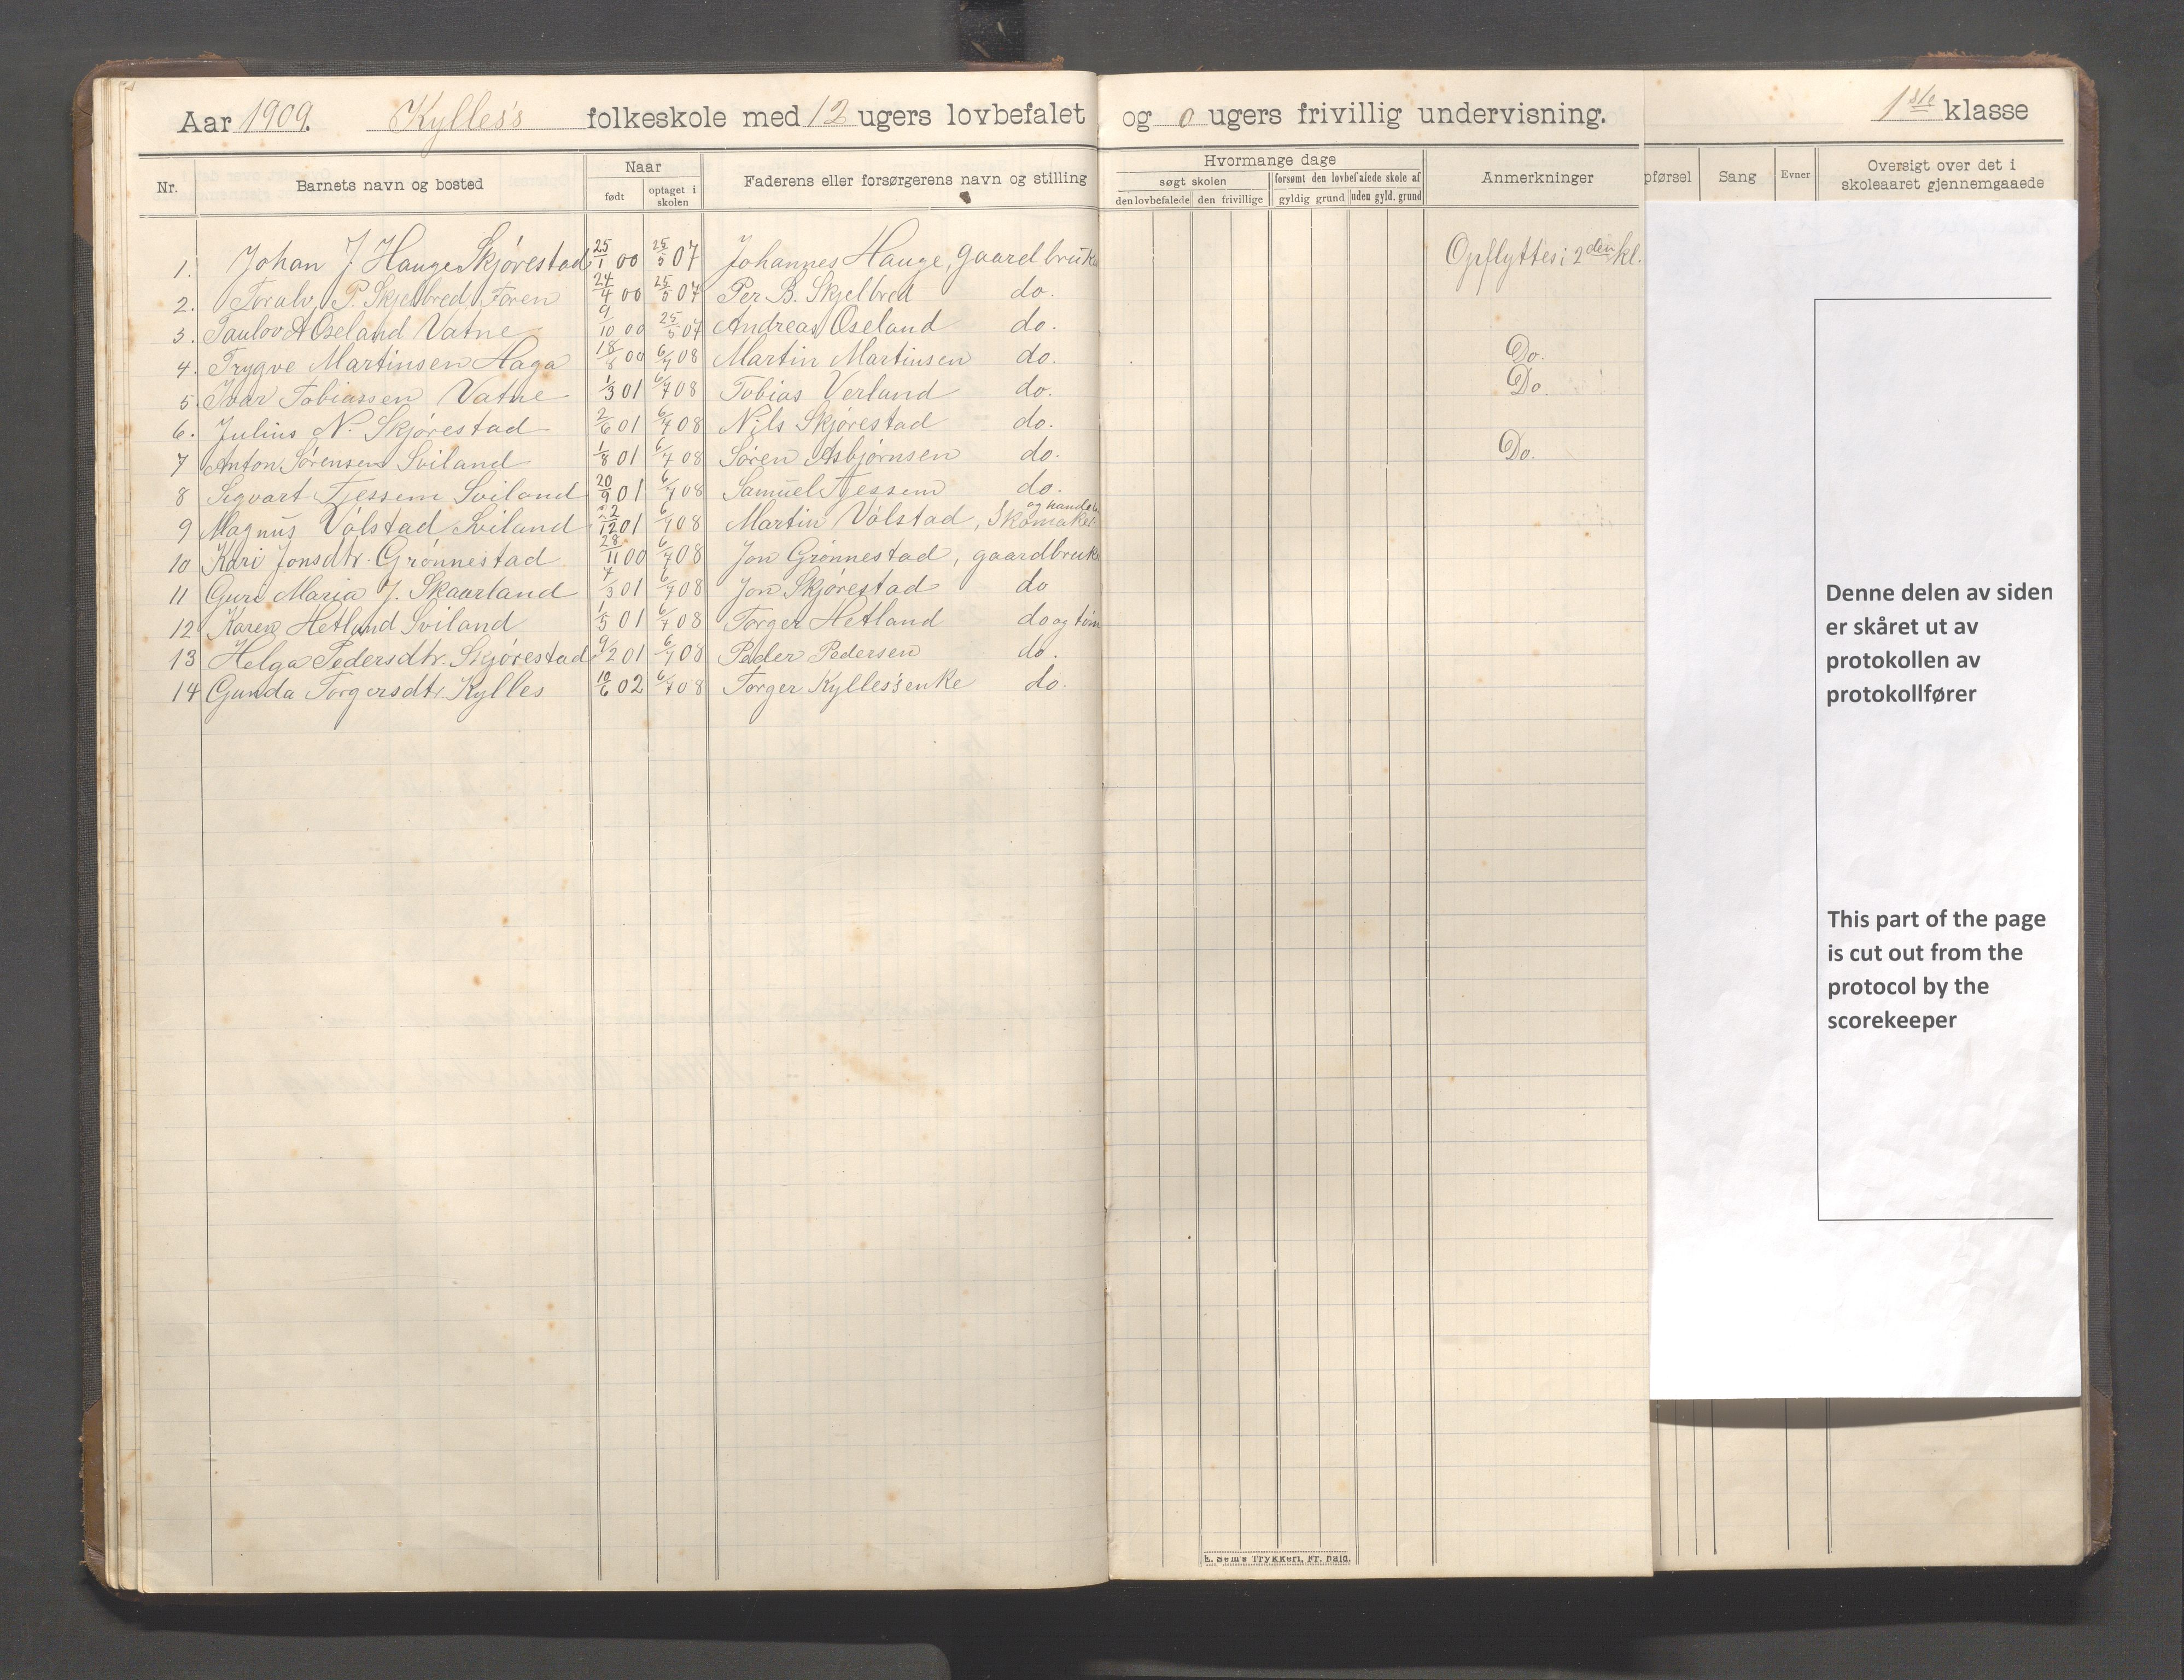 Aar 1909. Kylles's folkeskole med 12 ugers lovbefalet og 0 ugers frivillig undervisning. 1ste klasse
Nr. Barnets navn og bosted Naar født optaget i skolen Faderens eller forsørgerens navn og stilling
Hvormange dage
søgt skolen forsømt den lovbefalede skole af
den lovbefalede den frivillige gyldig grund uden gyld. grund
Anmerkninger
pførsel Sang Evner Oversigt over det i skoleaaret gjennemgaaede
1. Johan J. Hauge Skjørestad 25/1 00 25/5 07 Johannes Hauge, gaardbruke Opflyttes i 2den kl.
2. Toralv P. Skjelbred, Foren 24/4 00 25/5 07 Per B. Skjelbred do.
3. Paulov A Oseland Vatne 9/10 00 25/5 07 Andreas Oseland do.
4. Trygve Martinsen Haga 18/8 00 6/7 08 Martin Martinsen do. Do.
5. Ivar Tobiassen Vatne 1/3 01 6/7 08 Tobias Verland do. Do.
6. Julius N. Skjørestad 2/6 01 6/7 08 Nils Skjørestad do.
7 Anton Sørensen Sviland 1/8 01 6/7 08 Søren Asbjørnsen do. Do.
8 Sigvart Tjessem Sviland 20/9 01 6/7 08 Samuel Tjessem do.
9 Magnus Vølstad Sviland 22/12 01 6/7 08 Martin Vølstad, Skomaker og handels
10 Kari Jonsdtr. Grønnestad 28/11 00 6/7 08 Jon Grønnestad, gaardbruke
11 Guri Maria J. Skaarland 7/3 01 6/7 08 Jon Skjørestad do
12 Karen Hetland Sviland 1/5 01 6/7 08 Torger Hetland do og tøm
13 Helga Pedersdtr. Skjørestad 9/2 01 6/7 08 Peder Pedersen do.
14 Gunda Torgersdtr. Kylles 10/6 02 6/7 08 Torger Kylles's enke do.
Denne delen av siden
er skåret ut av
protokollen av
protokollfører
This part of the page
is cut out from the
protocol by the
scorekeeper
E. Sem's Trykkeri, Fr.hald.